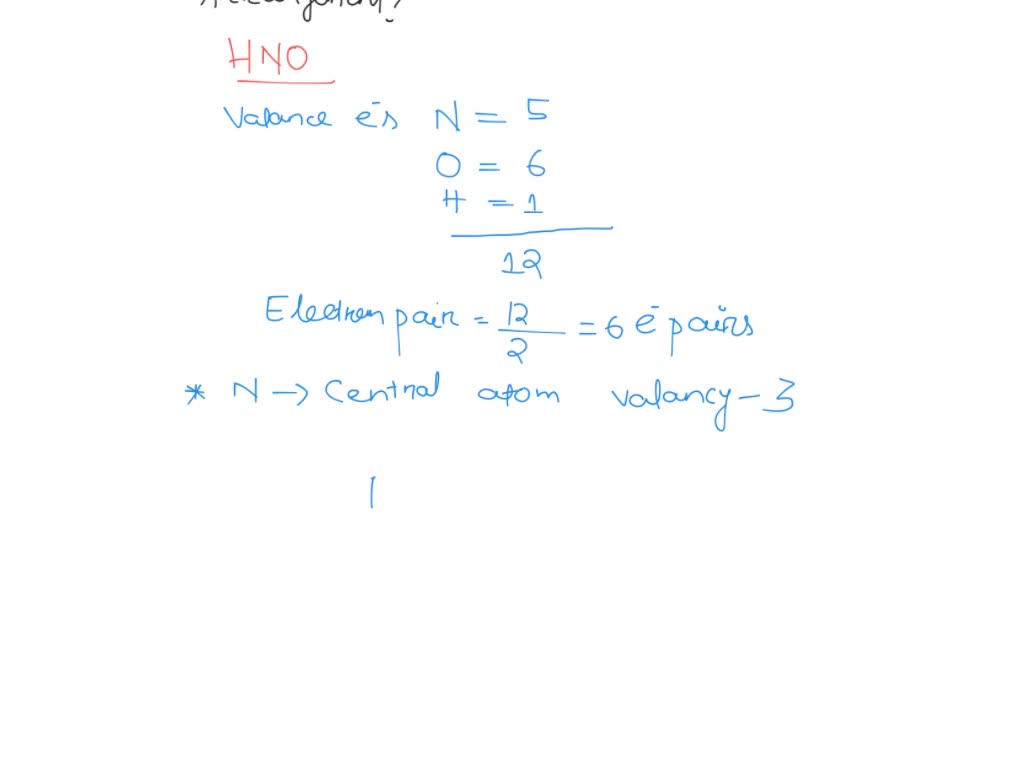 HNO
Valance ēs N = 5
O = 6
H = 1
12
Electron pair = 12/2 = 6 ē pairs
* N → Central atom valancy - 3